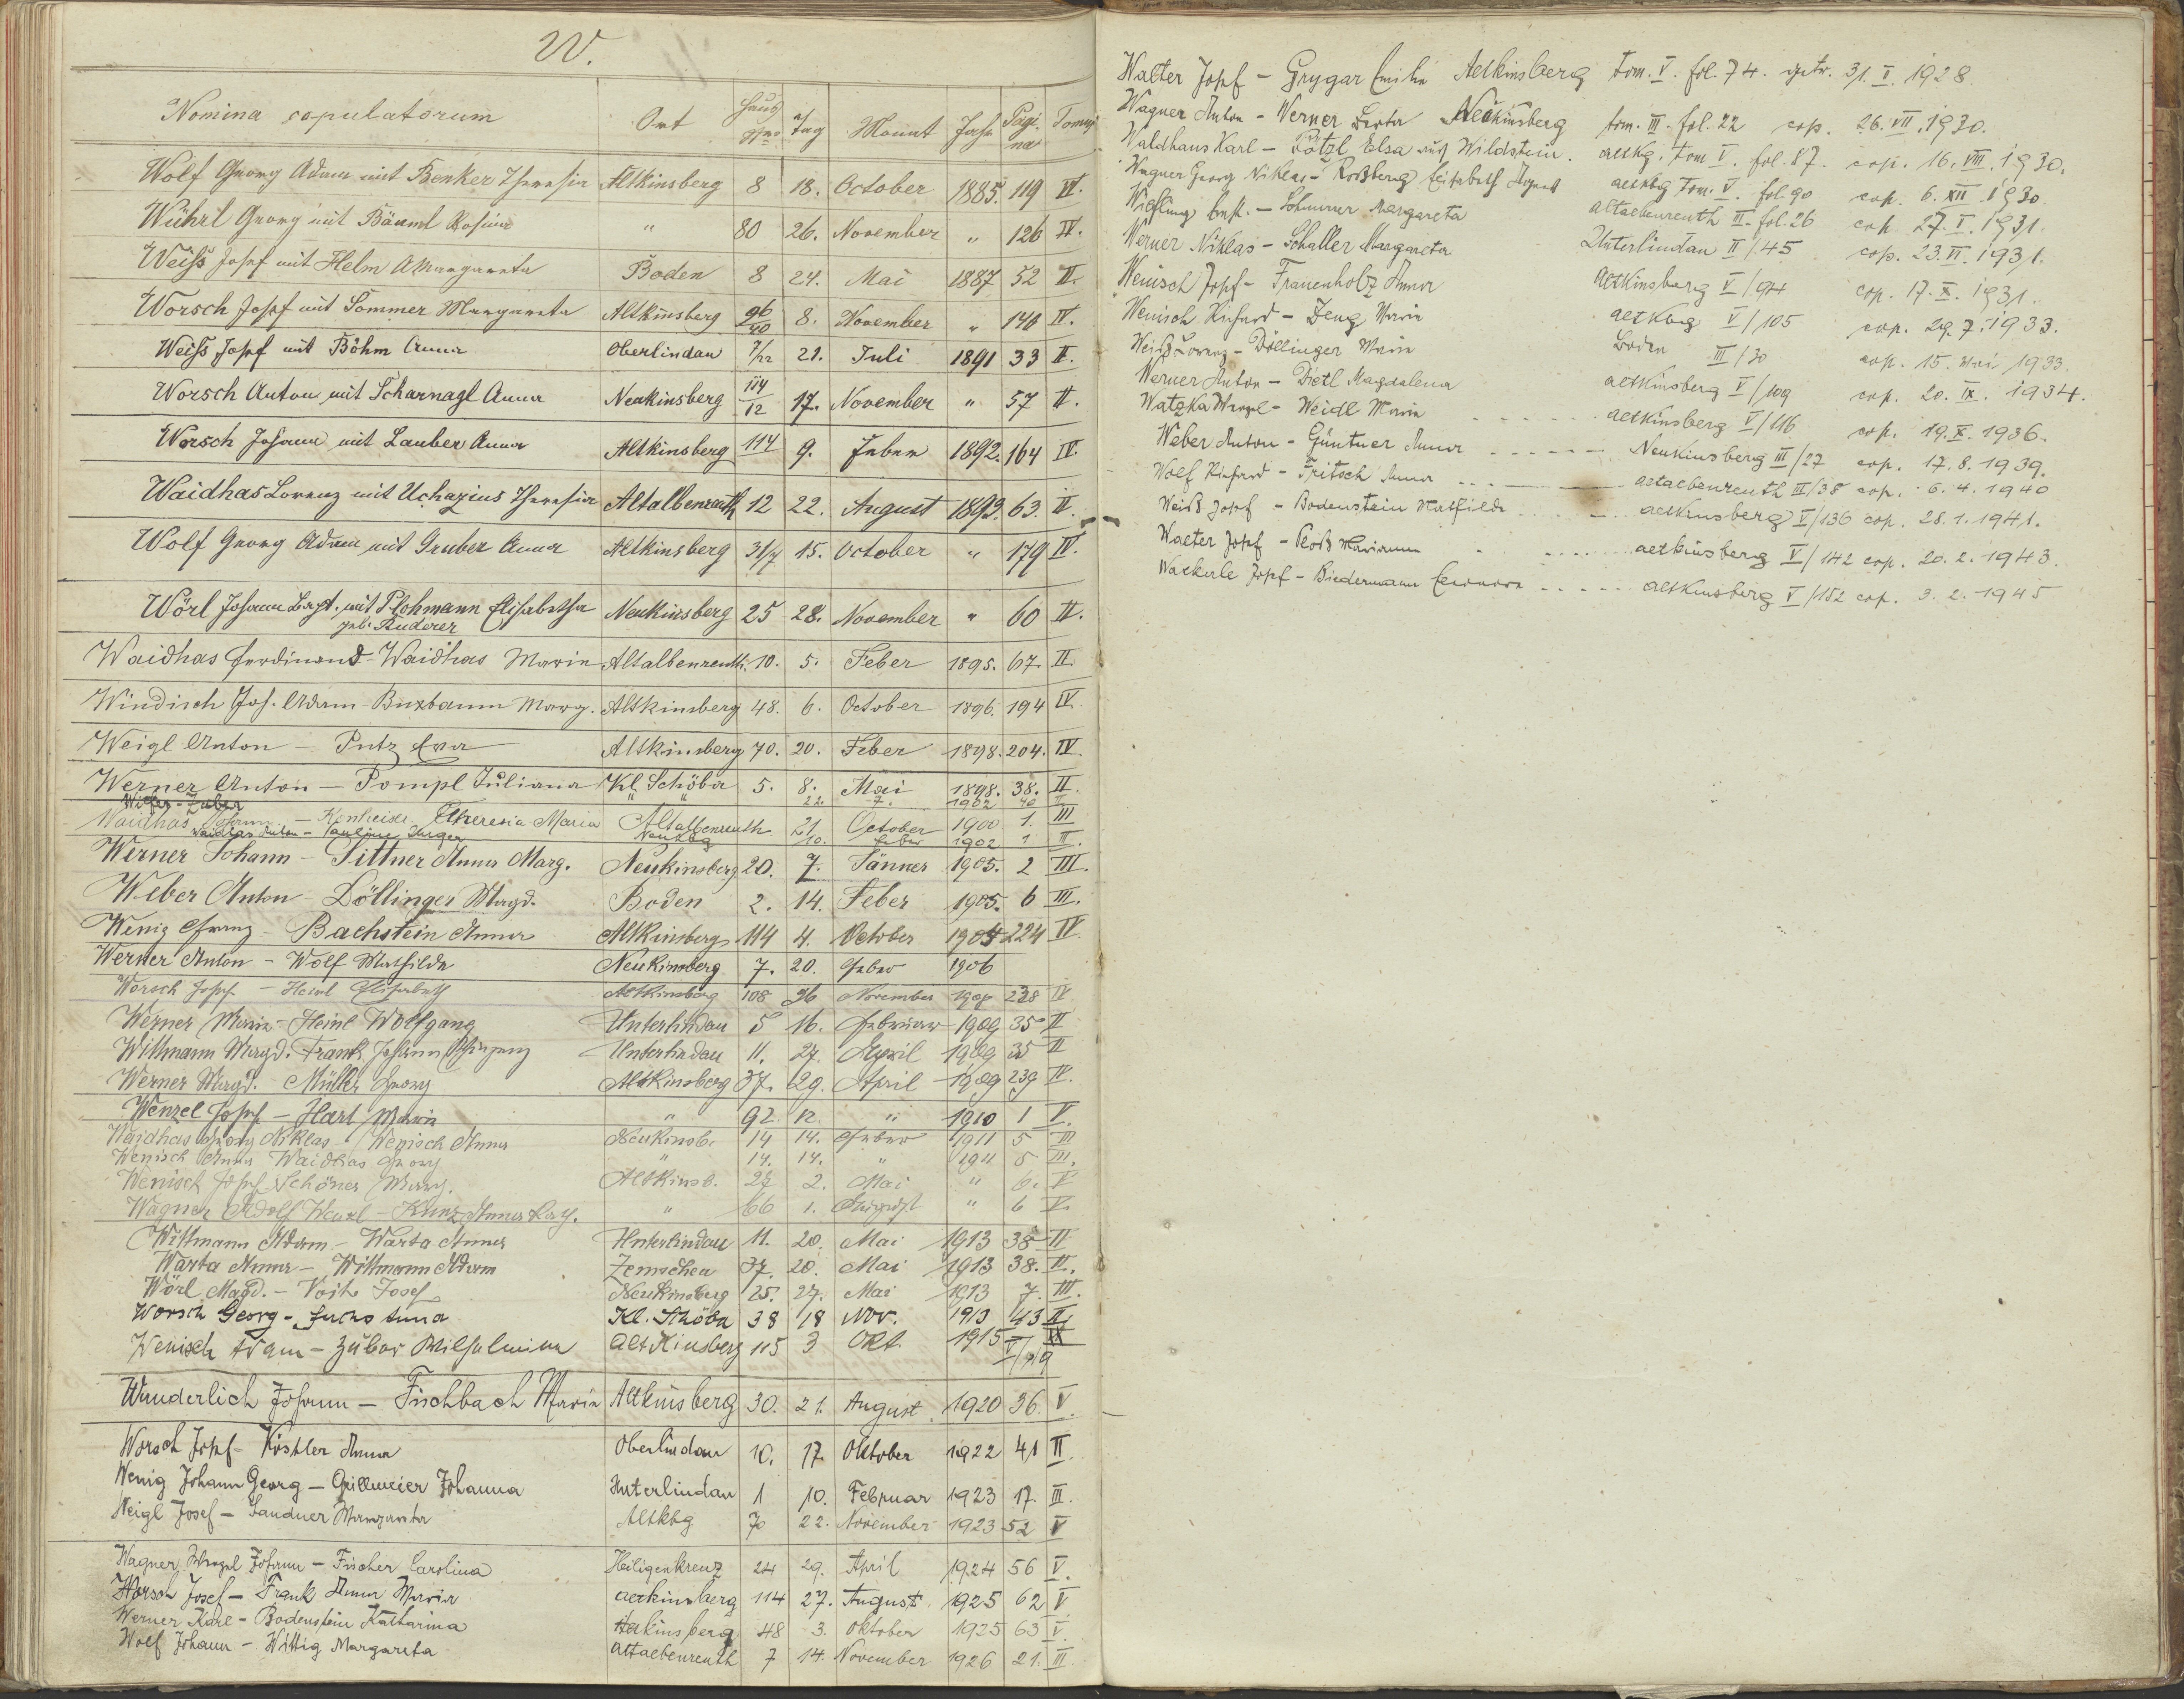 W.
Nomina copulatorum Ort Haus Nro Tag Monat Jahr Pagina Tomus
Wolf Georg Adam mit Benker Theresia Altkinsberg 8 18. October 1885. 119 IV.
Wührl Georg mit Bäuml Rosina " 80 26. November " 126 IV.
Weiß Josef mit Helm Margareta Boden 8 24. Mai 1887 52 II.
Worsch Josef mit Sommer Margareta Altkinsberg 96/40 8. November " 140 IV.
Weiß Josef mit Böhm Anna Oberlindau 7/12 21. Juli 1891 33 II.
Worsch Anton mit Scharnagl Anna Neukinsberg 114/12 17. November " 57 II.
Worsch Johann mit Lauber Anna Altkinsberg 114 9. Feber 1892. 164 IV.
Waidhas Lorenz mit Uchazius Theresia Altalbenreuth 12 22. August 1893. 63. II.
Wolf Georg Adam mit Gruber Anna Altkinsberg 31/7 15. October " 179 IV.
Wörl Johann Bapt. mit Plohmann Elisabetha Neukinsberg 25 28. November " 60 II.
geb. Ruderer
Waidhas Ferdinand - Waidhas Marie Altalbenreuth. 10. 5. Feber 1895. 67. II.
Windisch Jos. Adam - Buxbaum Marg. Altkinsberg 48. 6. October 1896. 194 IV.
Weigl Anton - Putz Eva Altkinsberg 70. 20. Feber 1898. 204. IV.
Werner Anton - Pompl Juliana Kl. Schöba 5. 8. Mai 1898. 38. II.
- Zuber " " 22. 7. 1902 40 II
Waidhas Johann - Konheiser Theresia Maria Altalbenreuth 21. October 1900 1. III
Waidhas Anton - Pauline Neukbg 10. Feber 1902 1 III.
Werner Johann - Sittner Anna Marg. Neukinsberg 20. 7. Jänner 1905. 2 III.
Weber Anton - Döllinger Magd. Boden 2. 14. Feber 1905. 6 III.
Wenig Franz - Bachstein Anna Altkinsberg 114 4. October 1904 224 IV
Werner Anton - Wolf Mathilde Neukinsberg 7. 20. Feber 1906
Worsch Josef - Heinl Elisabeth Altkinsberg 108 26 November 1908 238 IV
Werner Maria - Heinl Wolfgang Unterlindau 5 16. Februar 1909 35 II
Wittmann Magd. Frank Johann Unterlindau 11. 27. April 1909 35 II
Werner Magd. - Müller Georg Altkinsberg 37. 29. April 1909 239 IV.
Wenzel Josef - Hart Maria " 92. 12. " 1910 1 V.
Waidhas Georg Niklas - Wenisch Anna Neukinsb. 14 14. Feber 1911 5 III
Wenisch Anna Waidhas Georg " 14. 14. " 1911 5 III.
Wenisch Josef Schöner Marg. Altkinsb. 27 2. Mai " 6. V
Wagner Adolf Wenzl - Kunz Anna Kath. " 66 1. August " 6 V.
Wittmann Adam - Warta Anna Unterlindau 11. 20. Mai 1913 38 II
Warta Anna - Wittmann Adam Zemschen 37. 20. Mai 1913 38. II.
Wörl Magd. - Voit Josef Neukinsberg 25. 27. Mai 1913 7. III.
Worsch Georg - Fuchs Anna Kl. Schöba 38 18 Nov. 1913 43 II.
Wenisch Adam - Zuber Wilhelmina Altkinsberg 115 3 Okt. 1915 V/19
Wunderlich Johann - Fischbach Maria Altkinsberg 30. 21. August 1920 36. V.
Worsch Josef - Köstler Anna Oberlindau 10. 17. Oktober 1922 41 II
Wenig Johann Georg - Grillmeier Johanna Unterlindau 1 10. Februar 1923 17. III.
Weigl Josef - Sandner Margareta Altkbg 70 22. November 1923 52 V
Wagner Wenzel Johann - Fischer Carolina Heiligenkreuz 24 29. April 1924 56 V.
Worsch Josef - Frank Anna Maria Altkinsberg 114 27. August 1925 62 V
Werner Karl - Bodenstein Katharina Altkinsberg 48 3. Oktober 1925 63 V.
Wolf Johann - Wittig Margareta Altalbenreuth 7 14. November 1926 21. III.
Walter Josef - Grygar Emilie Altkinsberg tom. V. fol. 74. getr. 31. I. 1928.
Wagner Anton - Werner Berta Neukinsberg tom. III. fol. 22 cop. 26. VII. 1930.
Waldhans Karl - Pötzl Elsa aus Wildstein. Altkbg. tom V. fol. 87. cop. 16. VIII. 1930.
Wagner Georg Niklas - Roßberg Elisabeth Agnes Altkbg Tom. V. fol. 90 cop. 6. XII. 1930
Wiesling Ernst. - Sohmmer Margareta Altalbenreuth III. fol. 26 cop. 27. I. 1931.
Werner Niklas - Schaller Margareta Unterlindau II/45 cop. 23. VI. 1931.
Wenisch Josef - Frauenholz Anna Altkinsberg V/94 cop. 17. X. 1931.
Wenisch Richard - Zeug Maria Altkbg V/105 cop. 29. 7. 1933.
Weiß Lorenz - Döllinger Marie Boden III/30 cop. 15. Mai 1933.
Werner Anton - Dietl Magdalena Altkinsberg V/109 cop. 20. IX. 1934.
Watzka Wenzel - Weidl Marie Altkinsberg V/116 cop. 19. X. 1936.
Weber Anton - Güntner Anna Neukinsberg III/27 cop. 17. 8. 1939.
Wolf Richard - Fritsch Anna Altalbenreuth III/38 cop. 6. 4. 1940
Weiß Josef - Bodenstein Mathilde Altkinsberg V/136 cop. 28. 1. 1941.
Walter Josef - Marianne Altkinsberg V/142 cop. 20. 2. 1943.
Wackerle Josef - Biedermann Eleonora Altkinsberg V/152 cop. 3. 2. 1945